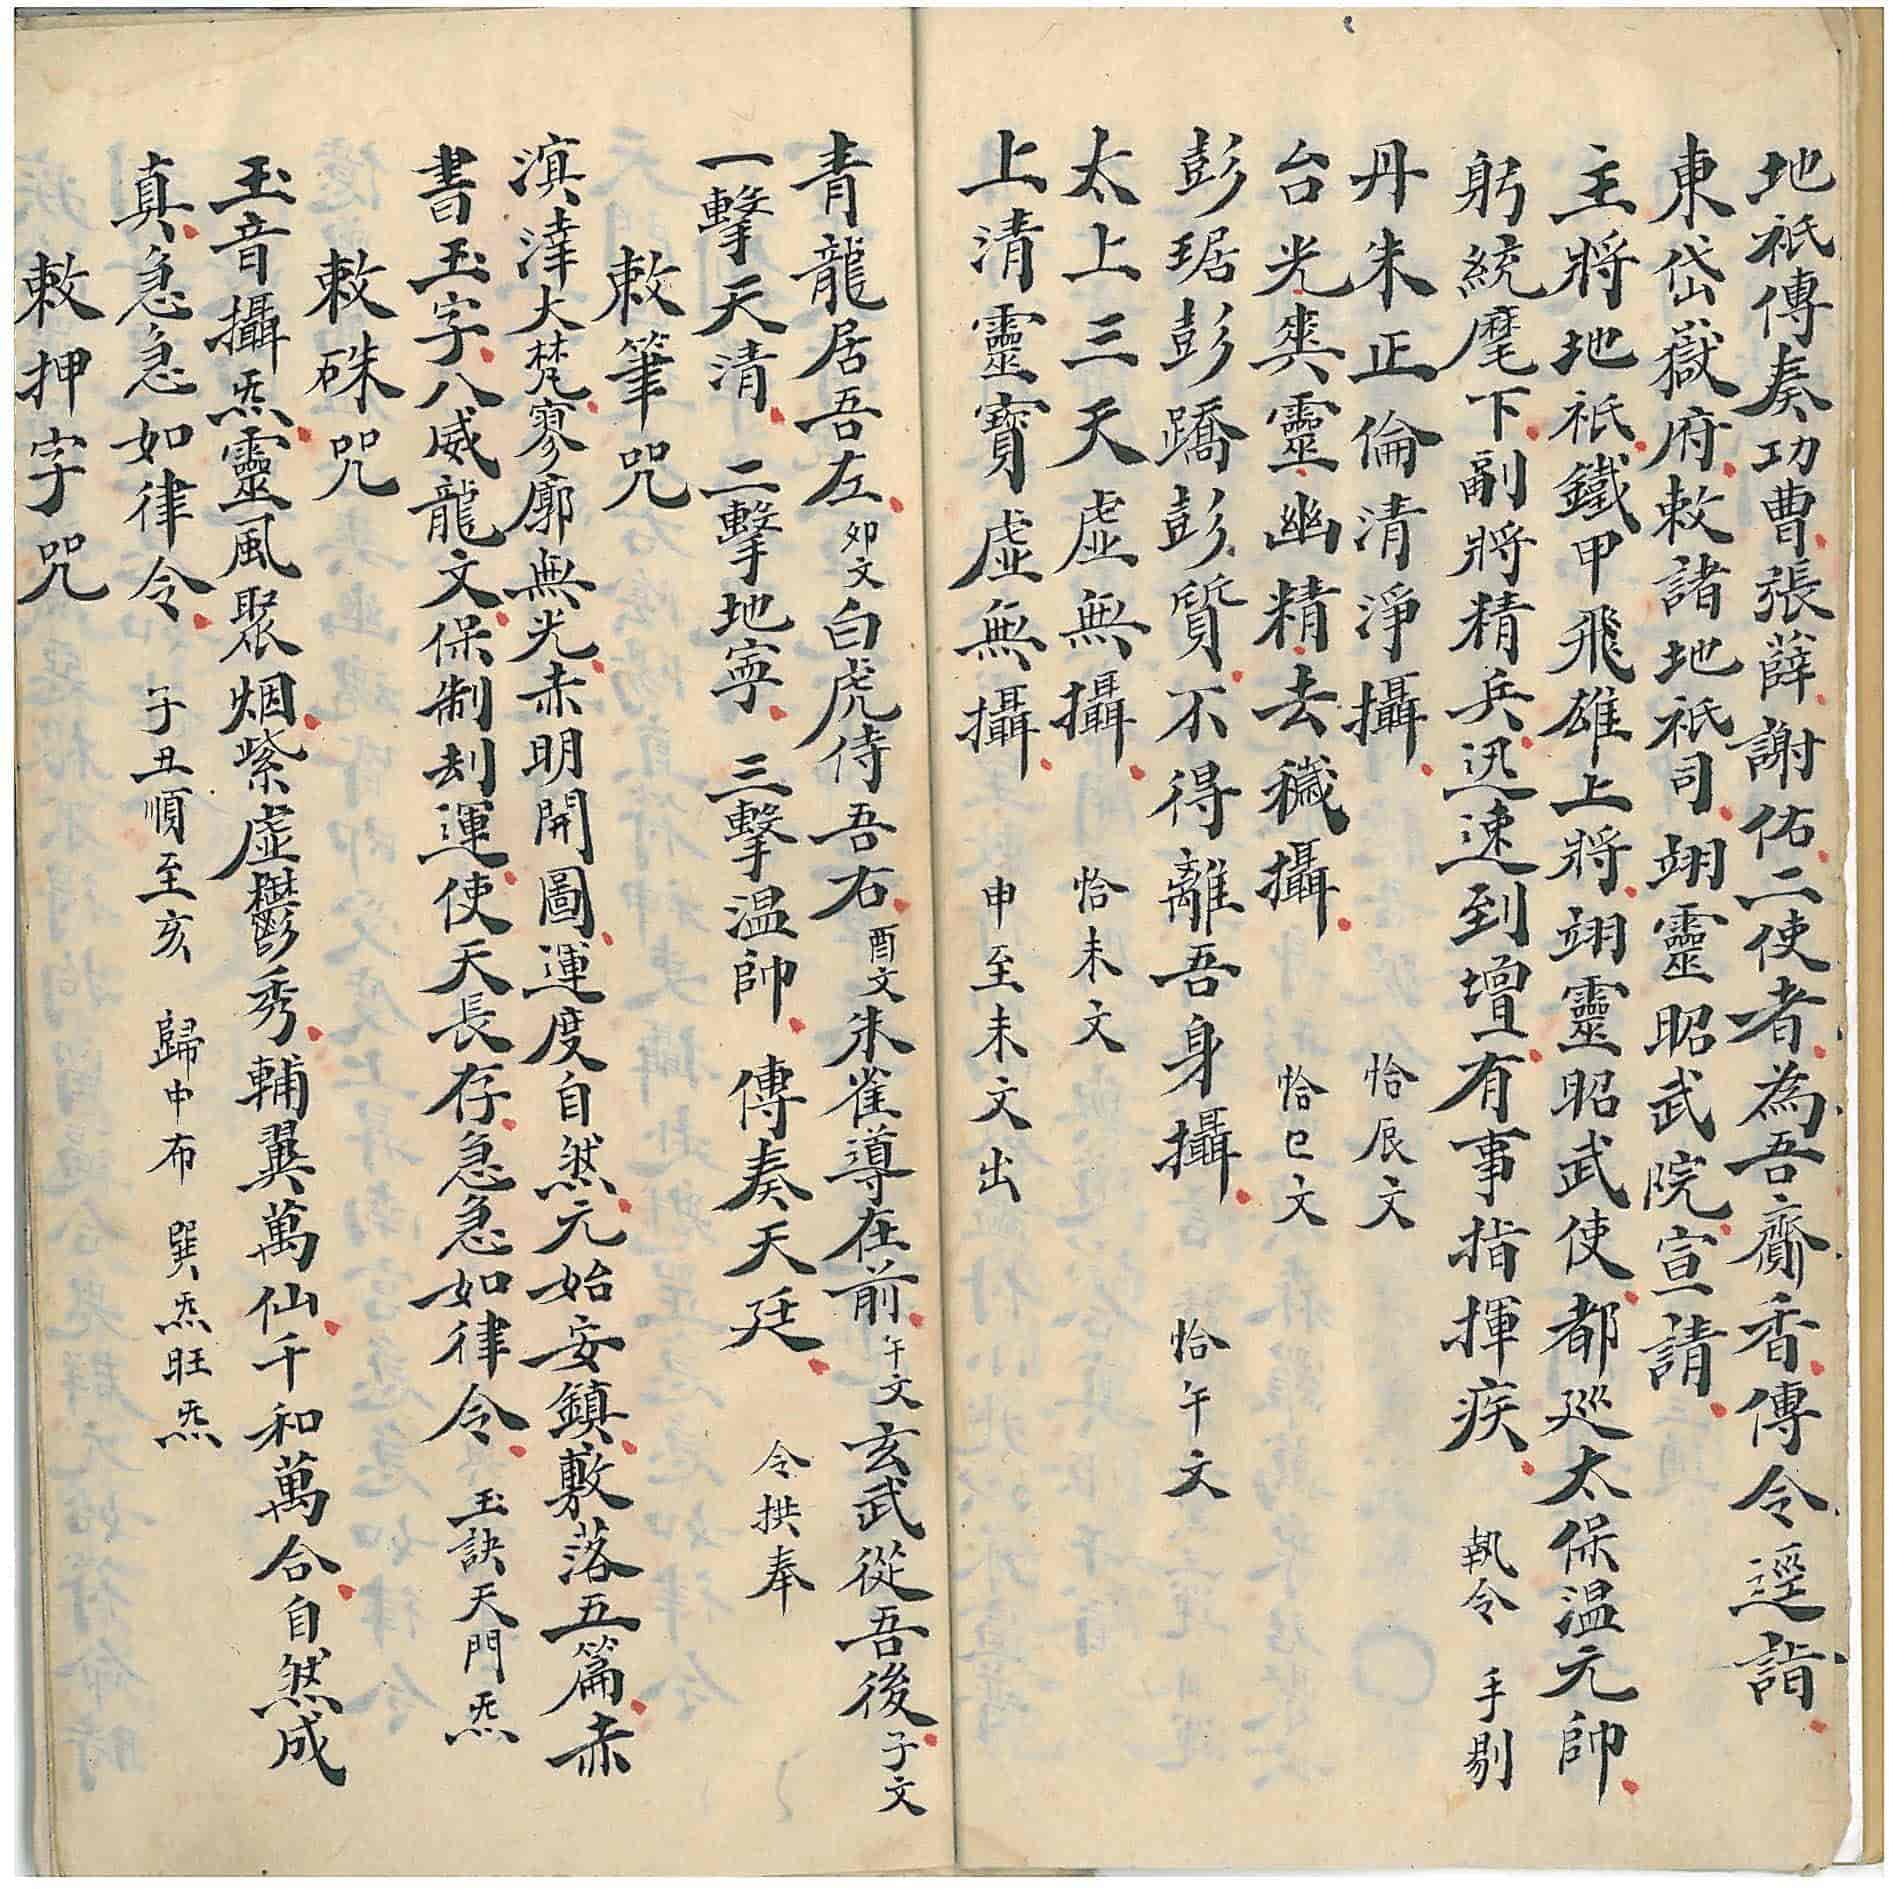 地祇傳奏功曹張薛謝佑二使者為吾齎香傳令逕詣
東岱嶽府敕諸地祇司翊靈昭武院宣請
主將地祇鐵甲飛雄上將翊靈昭武使都巡太保温元帥
躬統麾下副將精兵迅速到壇有事指揮疾 執令 手剔
丹朱正倫清淨攝 恰辰文
台光奭靈幽精去穢攝 恰巳文
彭琚彭蹻彭質不得離吾身攝 恰午文
太上三天虛無攝 恰未文
上清靈寶虛無攝 申至未文出
青龍居吾左卯文白虎侍吾右酉文朱雀導在前午文玄武從吾後子文
一擊天清 二擊地寜 三擊温帥 傳奏天廷 令拱奉
敕筆咒
溟涬大梵寥廓無光赤明開圖運度自然元始安鎮敷落五篇赤
書玉字八威龍文保制刦運使天長存急急如律令 玉訣天門炁
敕硃咒
玉音攝炁靈風聚烟紫虛鬱秀輔翼萬仙千和萬合自然成
真急急如律令 子丑順至亥 歸中布 巽炁旺炁
敕押字咒